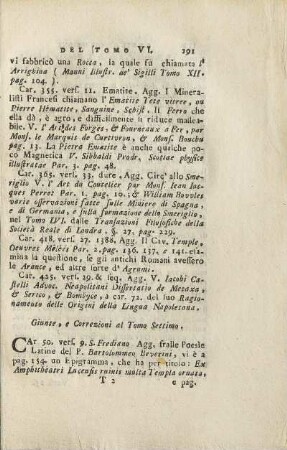 DEL TOMO VI. 291
vi fabbricò una Rocca, la quale fu chiamata l'
Arrighina ( Manni Illustr. de' Sigilli Tomo XII.
pag. 104. ).
Car. 355. vers. 11. Ematite. Agg. I Minera-
listi Francesi chiamano l' Ematite Tete vitree, ou
Pierre Hématite, Sanguine, Schist. Il Ferro che
ella dà, è agro, e difficilmente si riduce mallea-
bile. V. l' Art des Forges, & Fourneaux a Fer, par
Monf. le Marquis de Courtivron, & Monf. Bouchu
pag. 13. La Pietra Ematite è anche quriche po-
co Magnetica V. Sibbaldi Prodr. Scotiae physicae
illustratae Par. 3. pag. 48.
Car. 365. vers. 33. dure. Agg. Circ' allo Sme-
riglio V. l' Art du Coutelier par Monf. Jean Jac-
ques Perrot Par. 1. pag. 10. & William Bowles
varie osservazioni fatte sulle Miniere di Spagna,
e di Germania, e sulla formazione dello Smeriglio,
nel Tomo LVI. dalle Transazioni Filosofiche della
Società Reale di Londra. §. 27. pag. 229.
Car. 418. vers. 27. 1388. Agg. Il Cav. Temple,
Oeuvres Melées Par. 2. pag. 136. 137. e 141. esa-
mina la questione, se gli antichi Romani avessero
le Arance, ed altre sorte d' Agrumi.
Car. 425. vers. 29. & seq. Agg. V. Jacobi Ca-
stelli Advoc. Neapolitani Dissertatio de Metaxa,
& Serico, & Bombyce, a car. 72. del suo Ragio-
namento delle Origini della Lingua Napoletana.
Giunte, e Correzioni al Tomo Settimo.
CAr 50. vers. 9. S. Frediano Agg. fralle Poesie
Latine del P. Bartolommeo Beverini, vi è a
pag. 154. un Epigramma, che ha per titolo: Ex
Amphitheatri Lucensis ruinis multa Templa ornata,
T 2 e pag.